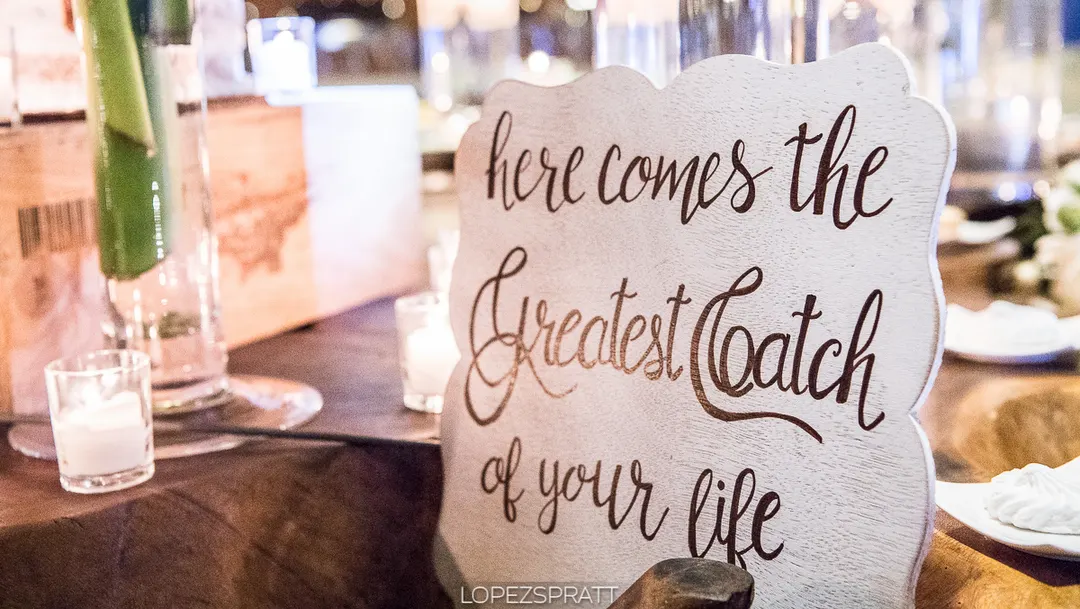 here comes the
Greatest Catch
of your life
LOPEZSPRATT